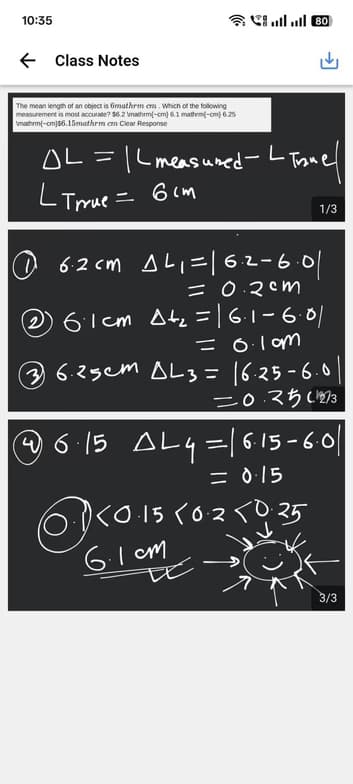 10:35
80
Class Notes
The mean length of an object is 6mathrm cm . Which of the following
measurement is most accurate? $6.2 \mathrm{~cm} 6.1 mathrm{~cm} 6.25
\mathrm{~cm}$6.15mathrm cm Clear Response
ΔL = |L measured - L True|
L True = 6 cm
1/3
① 6.2 cm ΔL₁ = |6.2 - 6.0|
= 0.2 cm
② 6.1 cm ΔL₂ = |6.1 - 6.0|
= 0.1 cm
③ 6.25cm ΔL3 = |6.25 - 6.0|
= 0.25 cm
2/3
④ 6.15 ΔL4 = |6.15 - 6.0|
= 0.15
0.1 < 0.15 < 0.2 < 0.25
6.1 cm
3/3